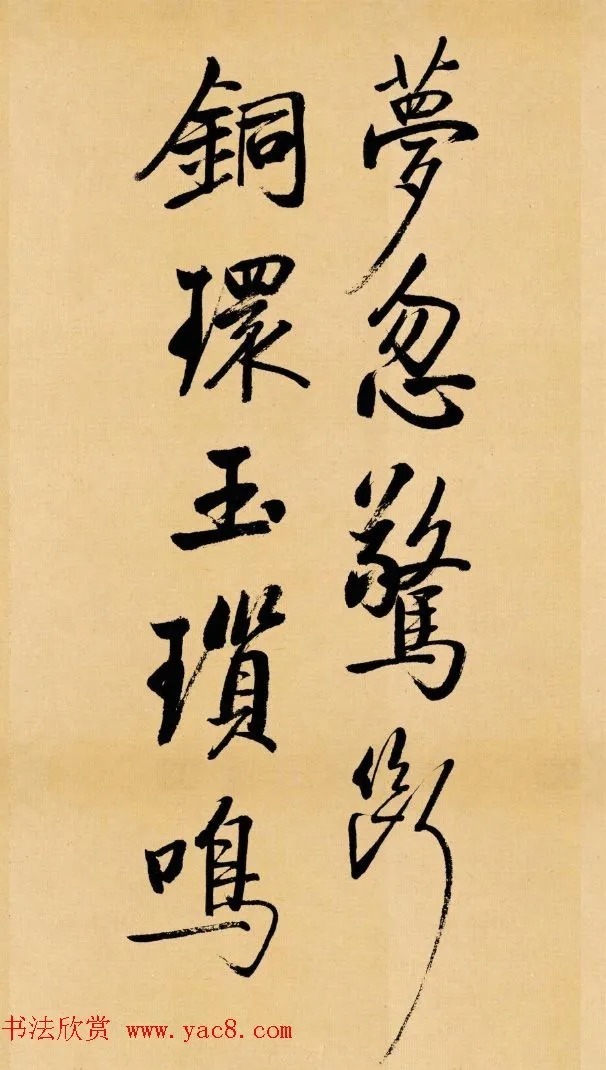 夢忽驚斷
銅環玉瑣鳴
书法欣赏 www.yac8.com